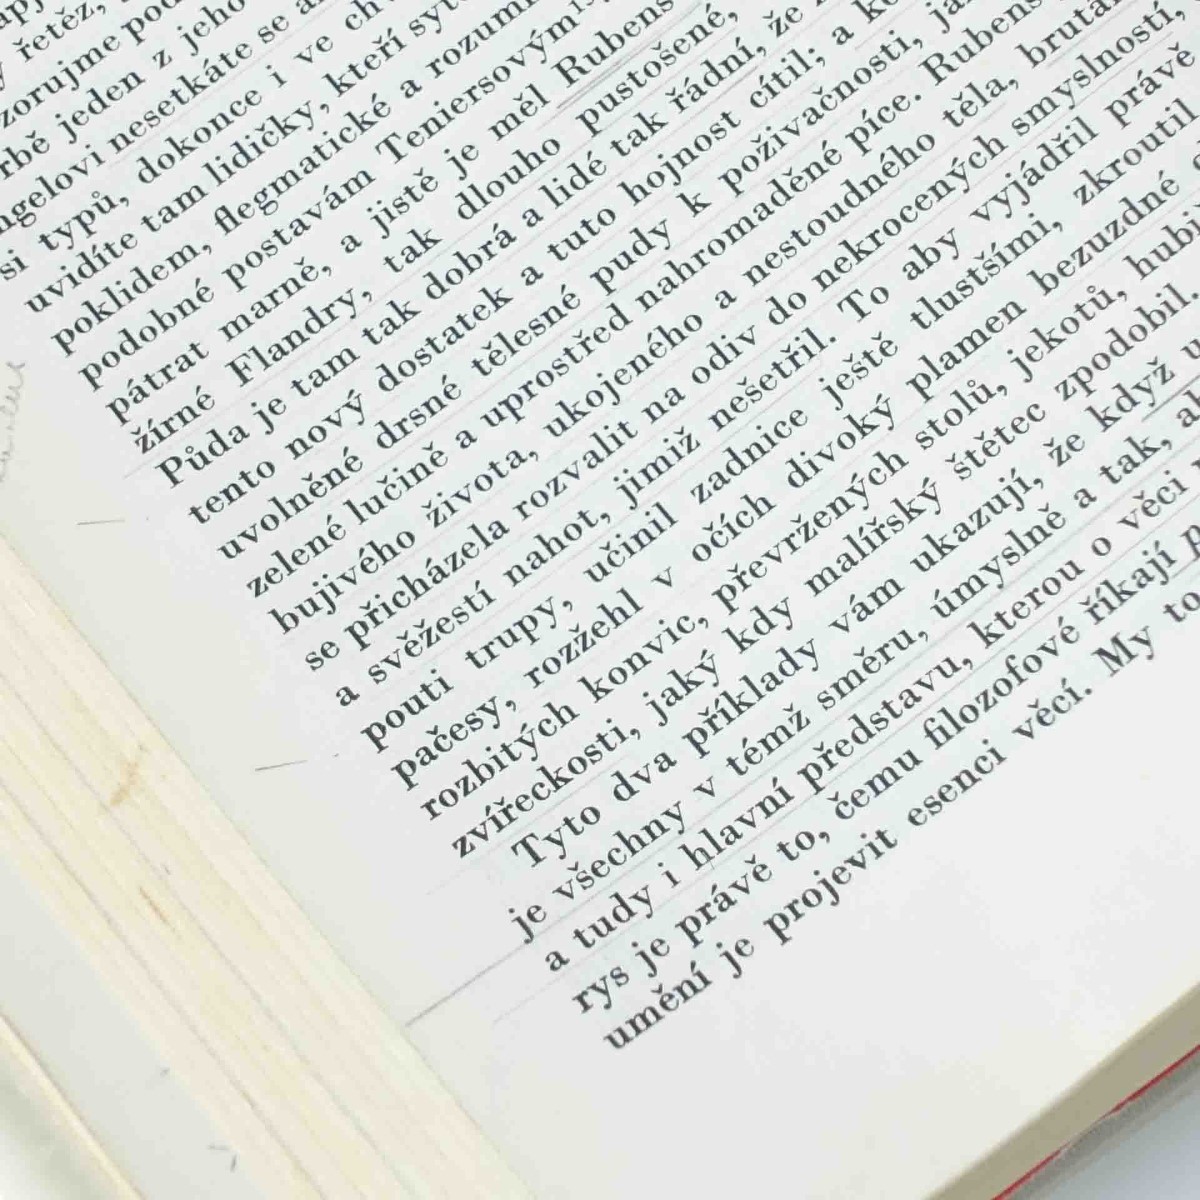 řetěz,
zorujme
jeden z jeho
nesetkáte se
si typů, dokonce i ve
uvidíte tam lidičky, kteří
poklidem, flegmatické a
podobné postavám Teniersovým
pátrat marně, a jistě je měl Rubens
žírné Flandry, tak dlouho pustošené,
Půda je tam tak dobrá a lidé tak řádní, že
tento nový dostatek a tuto hojnost cítil; a
uvolněné drsné tělesné pudy k poživačnosti,
zelené lučině a uprostřed nahromaděné píce. Rubens
bujivého života, ukojeného a nestoudného těla,
se přicházela rozvalit na odiv do nekrocených smyslností,
a svěžestí nahot, jimiž nešetřil. To aby vyjádřil právě
pouti trupy, učinil zadnice ještě tlustšími, zkroutil
pačesy, rozžehl v očích divoký plamen bezuzdné
rozbitých konvic, převržených stolů, jekotů,
zvířeckosti, jaký kdy malířský štětec zpodobil.
Tyto dva příklady vám ukazují, že když
je všechny v témž směru, úmyslně a tak,
a tudy i hlavní představu, kterou o věci
rys je právě to, čemu filozofové říkají
umění je projevit esenci věcí. My